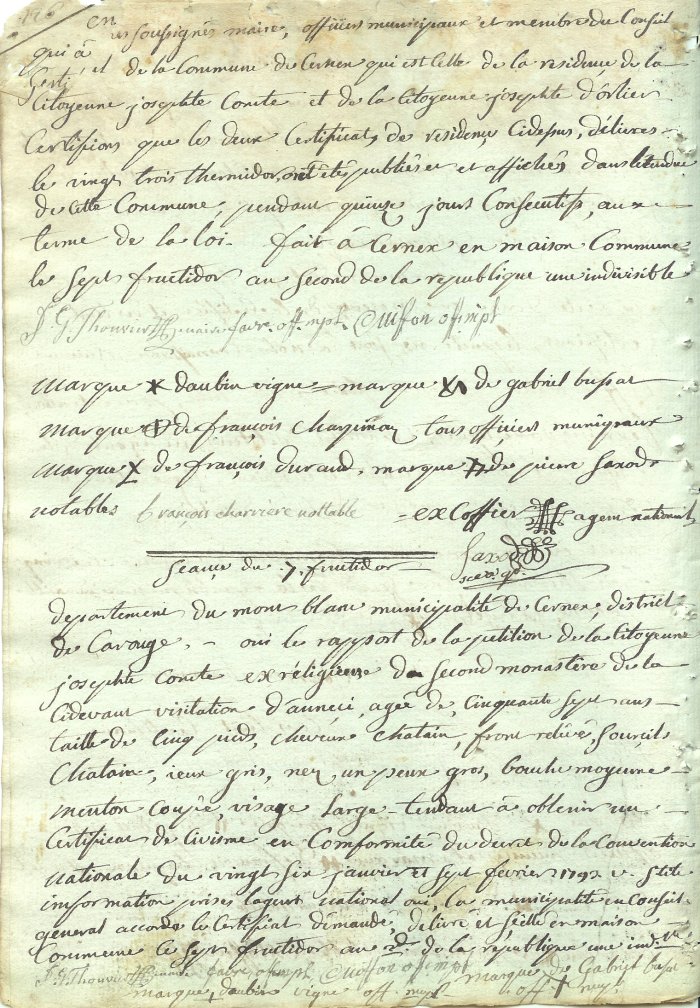 en
nous soussignés maire, officiers municipaux et membre du Conseil
qui a
et de la Commune de Cernex qui est Celle de la residence de la
Citoyenne josephte Comte et de la Citoyenne josephte d'orlier
Certifions que les deux Certificats de residence Cidessus, délivrés
le vingt trois thermidor, ont étés publiés et affichés dans létendue
de Cette Commune, pendant quinze jours Consecutifs, aux
terme de la loi. fait à Cernex en maison Commune
le Sept fructidor an Second de la republique une indivisible
J. G. Thouvier maire favre off. mpl. Cuiffon off. mpl
Marque daubin vigne = marque de gabriel bussat
Marque de françois Chargman tous officiers municipaux
Marque X de françois durand, marque de pierre Saxod
notables francois charriere nottable = exCoffier agent national
Saxod
secr. gr.
Seance du 7 fructidor
departement du mont blanc municipalité de Cernex, district
de Carouge. - oui le rapport de la petition de la Citoyenne
josephte Comte exréligieuse du Second monastère de la
Cidevant visitation d'anneci, agée de Cinquante Sept ans
taille de Cinq pieds, cheveux Chatain, front relevé, Sourcils
Chatain, ieux gris, nez un peux gros, bouche moyenne
menton Coupé, visage large tendant à obtenir un
Certificat de Civisme en Conformité du decret de la Convention
nationale du vingt Six janvier et Sept fevrier 1793 v. Stile
information prises lagent national oui, la municipalité en Conseil
general accorde le Certificat demandé, délivré et Scellé en maison
Commune le Sept fructidor an 2d de la republique une ind.
J. G. Thouvier maire favre off mpl Cuiffon off mpl marque de Gabriel bussat
marque daubin vigne off. mupl off mupl